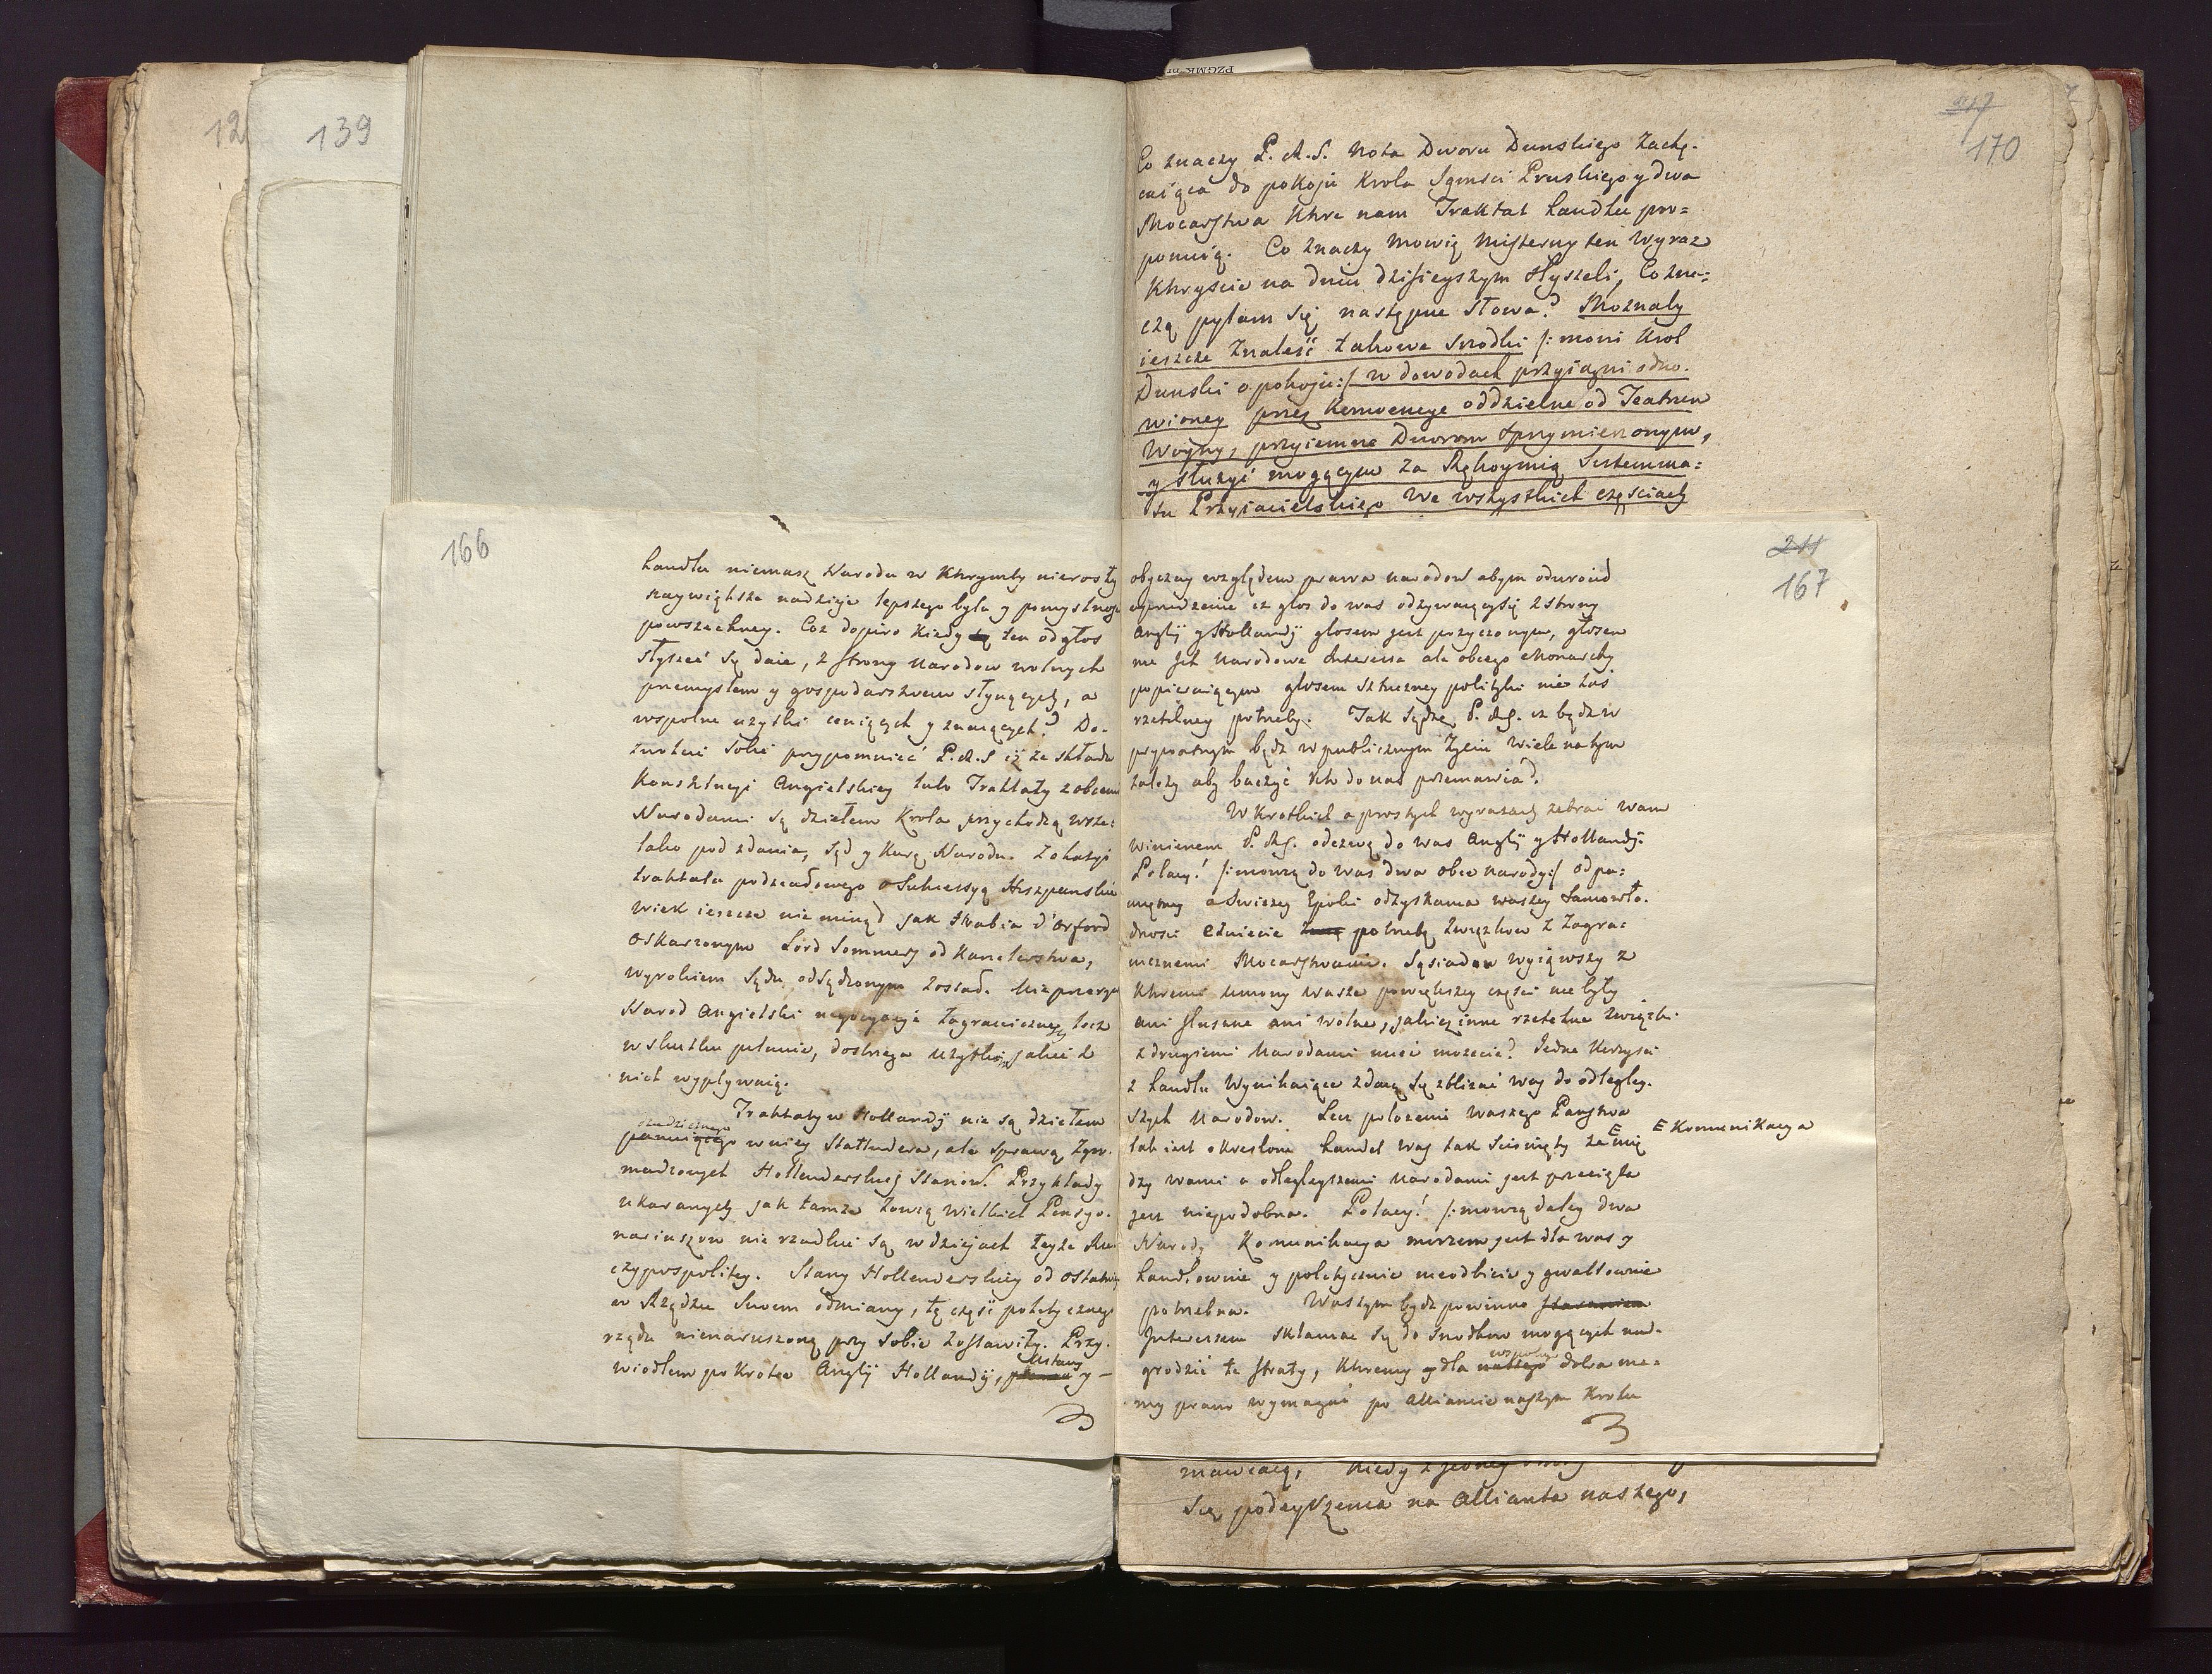 12
139
217
170
PZGMK nr
Co znaczy P. R. S. Nota Dworu Dunskiego zachę-
caiąca do pokoju Krola Jgmsci Pruskiego y dwa
Mocarstwa Które nam Traktat handlu pro=
ponuią. Co znaczy mowię misterny ten wyraz
Któryście na dniu dzisieyszym słyszeli, Co zna=
czą pytam się następne słowa? Moznaby
ieszcze znaleść takowe srodki /: mowi Krol
Dunski o pokoju :/ w dowodach przyiazni odno-
wioney przez Konwencye oddzielne od Teatrum
Woyny, przyiemne Dworom sprzymierzonym,
y służyć mogącym za Rękoymią Sistemma=
tu Przyiacielskiego we wszystkich częściach
166
handlu niemasz Narodu w Którymby nierosły
naywiększe nadzieje lepszego bytu y pomyslnosci
powszechney. Coz dopiro kiedy ten odgłos
słyszeć się daie, z strony Narodow wolnych
przemysłem y gospodarstwem słynących, a
wspolne uzytki ceniących y znaiących? Do-
zwolcie sobie przypomnieć P. R. S iż ze składu
Konstytucyi Angielskiey lubo Traktaty z obcemi
Narodami są dziełem Krola przychodzą wsze=
lako pod zdanie, sąd y karę Narodu. Z okazyi
traktatu podziałowego o Sukcessyą Hiszpanską
wiek ieszcze nie minął jak Hrabia d'Orford
oskarzonym Lord Sommers od Kanclerstwa,
wyrokiem Sądu odsądzonym został. Nie przerywa
Narod Angielski negocyacyi zagranicznych, lecz
w skutku pilnuie, dostrzega uzytkow jakie z
nich wypływaią.
Traktaty w Hollandÿ nie są dziełem
dziedzicznego
panuiącego w niey Stathudera, ale sprawą zgro-
madzonych Hollenderskich Stanow. Przykłady
ukaranych jak tamze zowią wielkich Pensyo-
nariuszow nie rzadkie są w dziejach teyże Rze
czypospolitey. Stany Hollenderskiey od ostatniey
w Rządzie swoim odmiany, tę część politycznego
rządu nienaruszoną przy sobie zostawiły. Przy-
Ustawy
wiodłem po krotce Anglÿ Hollandÿ, y –
211
167
obyczay względem prawa narodow abym odwrocił
uprzedzenie iz głos do was odzywaiący się z strony
Anglÿ y Hollandÿ głosem jest pozyczonym, głosem
nie Jch Narodowe Interessa ale obcego Monarchy
popieraiącym głosem sztuczney polityki nie zaś
rzetelney potrzeby. Jak sądzę P. R. S. iz będz w
prywatnym będz w publicznym zyciu wiele na tym
zalezy aby baczyć kto do nas przemawiał.
W krotkich a prostych wyrazach zebrać wam
winienem P. R. S. odezwę do was Anglÿ y Hollandÿ.
Polacy! /: mowią do was dwa obce narody :/ od pa=
miętney a swiezey Epoki odzyskania waszey Samowła-
dnosci czuiecie potrzebę związkow z zagra=
nicznemi Mocarstwami. Sąsiadow wyiąwszy z
Ktoremi umowy wasze powiększey części nie były
ani słuszne ani wolne, jakiez inne rzetelne związki
z drugiemi Narodami mieć mozecie? Jedne Korzysci
z handlu wynikaiące zdaią się zblizać was do odległey-
szych Narodow. Lecz połozenie waszego Panstwa
tak iest okreslone handel was tak scisnięty że E mię E Komunikacya
dzy wami a odległeyszemi Narodami jest przecięta
jest niepodobna. Polacy! /: mowią daley dwa
Narody Komunikacya morzem jest dla was y
handlownie y politycznie nieodbicie y gwałtownie
potrzebna. Waszym bydz powinno staraniem
Interessem skłaniac się do srodkow mogących nad-
wspolnego
grodzić te straty, Któremy y dla naszego dobra ma=
my prawo wymagać po Alliancie naszym Krolu
mawiaią, kiedy z jedney strony
Się podeyrzenia na Allianta naszego,